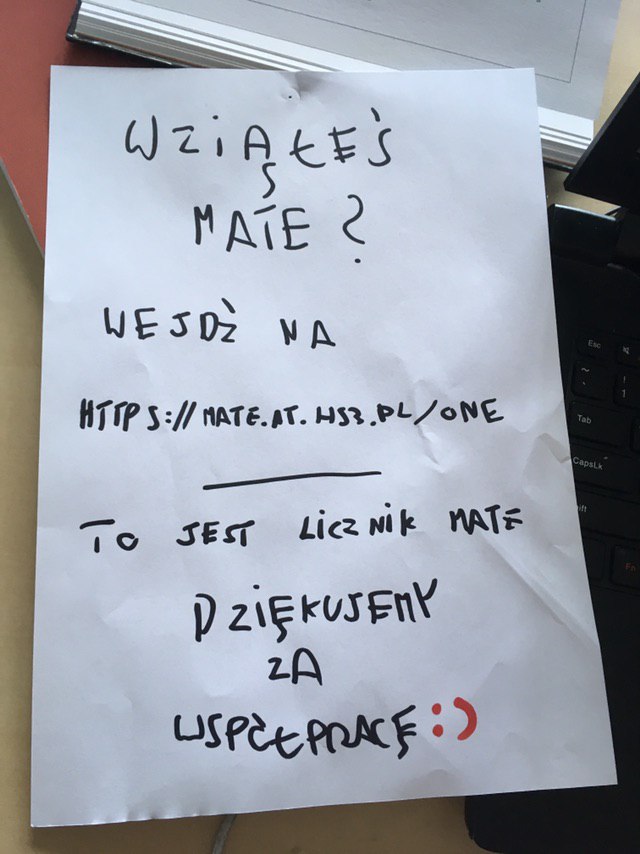 WZIĄŁEŚ
MATE?
WEJDŹ NA
HTTPS://MATE.AT.HS3.PL/ONE
TO JEST LICZNIK MATE
DZIĘKUJEMY
ZA
WSPÓŁPRACĘ :)
Esc
~
`
!
1
Tab
CapsLk
Fn